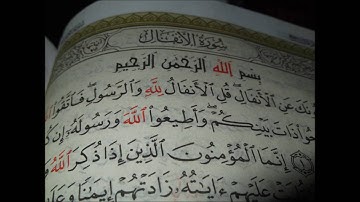 سُورَةُ الأَنفَالِ
بِسْمِ اللَّهِ الرَّحْمَٰنِ الرَّحِيمِ
عَنِ الْأَنفَالِ قُلِ الْأَنفَالُ لِلَّهِ وَالرَّسُولِ فَاتَّقُوا
بَيْنِكُمْ وَأَطِيعُوا اللَّهَ وَرَسُولَهُ إِن
إِنَّمَا الْمُؤْمِنُونَ الَّذِينَ إِذَا ذُكِرَ اللَّهُ
عَلَيْهِمْ ءَايَٰتُهُ زَادَتْهُمْ إِيمَٰنًا